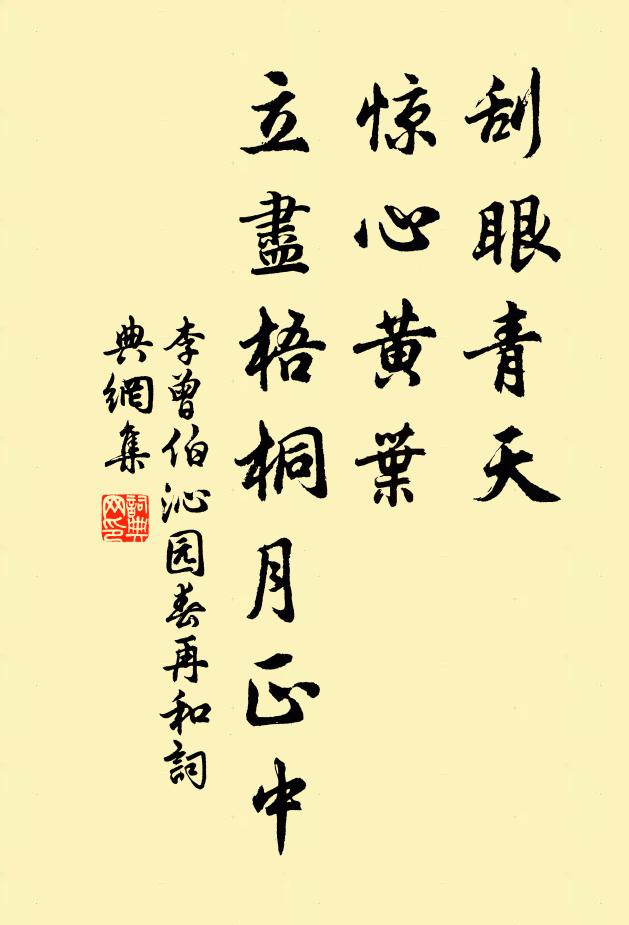 刮眼青天
惊心黄葉
立盡梧桐月正中
李曾伯沁园春再和詞
典網集
詞典
网印